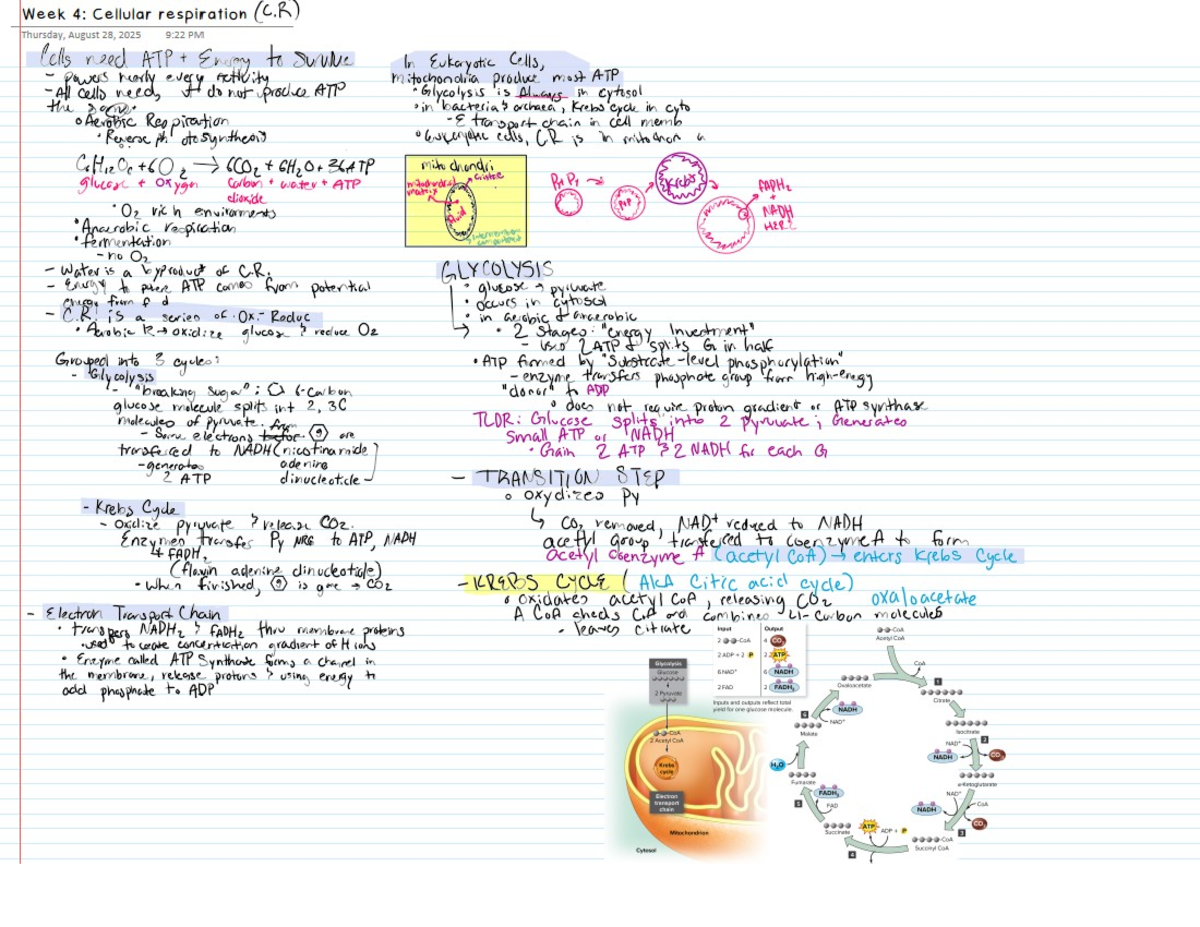 Week 4: Cellular respiration (C.R)
Thursday, August 28, 2025 9:22 PM
Cells need ATP + Energy to Survive
- powers nearly every activity
- All cells need, do not produce ATP
the same.
• Aerobic Respiration
• Reverse photosynthesis
C6H12O6 + 6O2 → 6CO2 + 6H2O + 36ATP
glucose + Oxygen Carbon + water + ATP
dioxide
• O2 rich enviroments
• Anaerobic respiration
• fermentation
- no O2
- Water is a byproduct of C.R.
- Energy to power ATP comes from potential
energy from f d
- C.R. is a series of Ox.- Reduc
• Aerobic R → oxidize glucose & reduce O2
Grouped into 3 cycles:
- Glycolysis
- "breaking sugar"; 6-Carbon
glucose molecule splits int 2, 3C
molecules of pyruvate.
- Some electrons from (g) are
transferred to NADH (nicotinamide
- generates adenine
2 ATP dinucleotide
- Krebs Cycle
- Oxidize pyruvate & release CO2.
Enzymes transfer Py NRG to ATP, NADH
+ FADH2
(flavin adenine dinucleotide)
• When finished, (g) is gone → CO2
- Electron Transport Chain
• Transfers NADH2 & FADH2 thru membrane proteins
• used to create concentration gradient of H ions
• Enzyme called ATP Synthase forms a channel in
the membrane, release protons & using energy to
add phosphate to ADP
In Eukaryotic Cells,
mitochondria produce most ATP
• Glycolysis is Always in cytosol
• in bacteria & archaea, Krebs cycle in cyto
- E transport chain in cell memb
• Eukaryotic cells, CR is in mitochon a
mitochondri
cristae
mitochondrial
matrix
fluid
intermembrane
compartment
Py Py
Krebs
FADH2
+
NADH
GLYCOLYSIS
• glucose → pyruvate
• occurs in cytosol
• in aerobic & anaerobic
• 2 Stages: "Energy Investment"
- Uses 2 ATP & splits G in half
• ATP formed by "Substrate-level phosphorylation"
- enzyme transfers phosphate group from high-energy
"donor" to ADP
• does not require proton gradient or ATP synthase
TLDR: Glucose splits into 2 pyruvate; Generates
Small ATP or NADH
• Gain 2 ATP & 2 NADH for each G
- TRANSITION STEP
• oxydizes Py
↳ CO2 removed, NAD+ reduced to NADH
acetyl group transferred to coenzyme A to form
acetyl Coenzyme A (acetyl CoA) → enters Krebs Cycle
- KREBS CYCLE (AKA Citric acid cycle)
• Oxidates acetyl CoA, releasing CO2 oxaloacetate
A CoA sheds CoA and combines 4-Carbon molecules
• leaves citrate
Input Output
2 -CoA 4 CO2
2 ADP + 2 P 2 ATP
6 NAD+ 6 NADH
2 FAD 2 FADH2
Inputs and outputs reflect total
yield for one glucose molecule.
Glycolysis
Glucose
2 Pyruvate
-CoA
2 Acetyl CoA
Krebs
cycle
Electron
transport
chain
Mitochondrion
Cytosol
-CoA
Acetyl CoA
CoA
1
Citrate
Isocitrate
2
NAD+
NADH
CO2
α-Ketoglutarate
NAD+
CoA
NADH
CO2
3
-CoA
Succinyl CoA
ADP + P
ATP
4
Succinate
FAD
FADH2
5
Fumarate
H2O
Malate
6
NAD+
NADH
Oxaloacetate